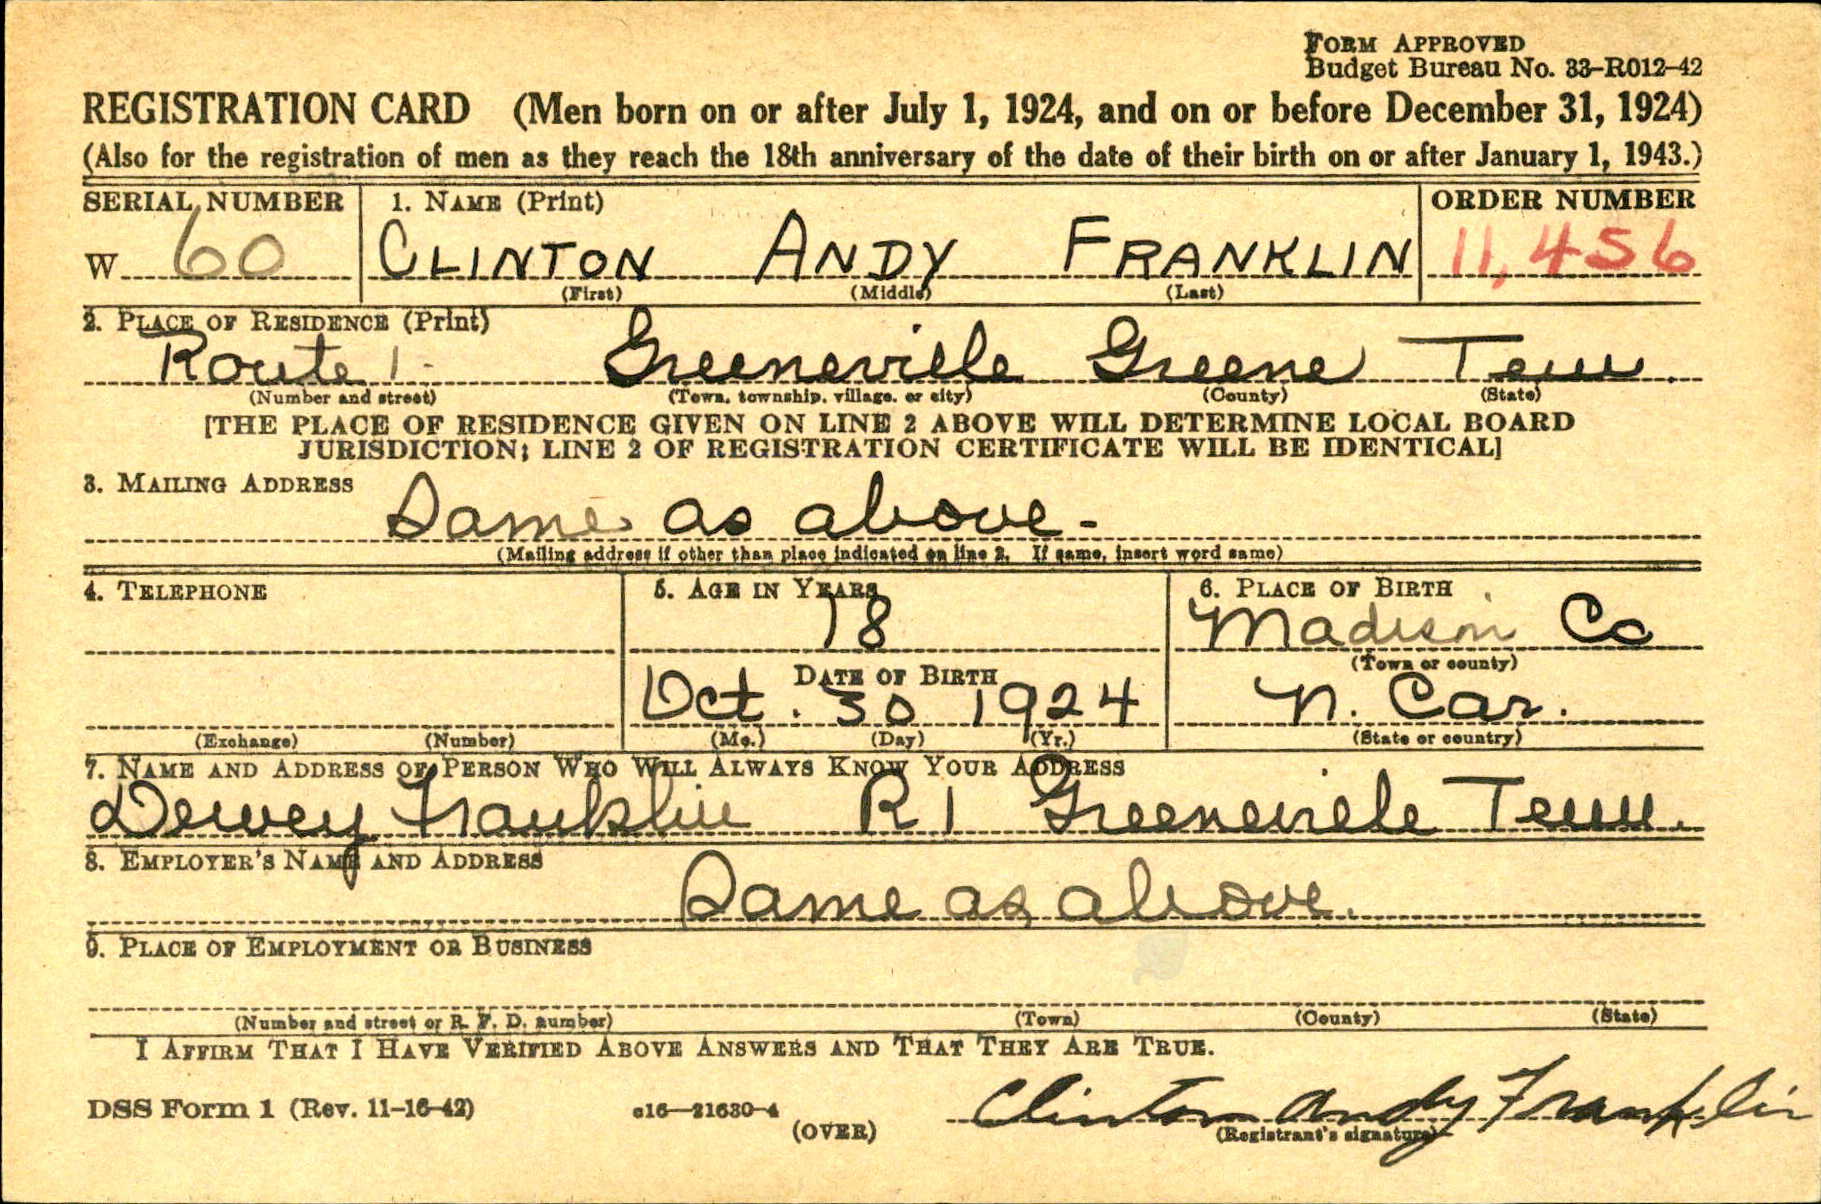 FORM APPROVED
Budget Bureau No. 33-R012-42
REGISTRATION CARD (Men born on or after July 1, 1924, and on or before December 31, 1924)
(Also for the registration of men as they reach the 18th anniversary of the date of their birth on or after January 1, 1943.)
SERIAL NUMBER 1. NAME (Print) ORDER NUMBER
W 60 CLINTON ANDY FRANKLIN 11,456
(First) (Middle) (Last)
2. PLACE OF RESIDENCE (Print)
Route 1 Greeneville Greene Tenn.
(Number and street) (Town, township, village, or city) (County) (State)
[THE PLACE OF RESIDENCE GIVEN ON LINE 2 ABOVE WILL DETERMINE LOCAL BOARD
JURISDICTION; LINE 2 OF REGISTRATION CERTIFICATE WILL BE IDENTICAL]
3. MAILING ADDRESS
Same as above-
(Mailing address if other than place indicated on line 2. If same, insert word same)
4. TELEPHONE 5. AGE IN YEARS 6. PLACE OF BIRTH
18 Madison Co
DATE OF BIRTH (Town or county)
Oct. 30 1924 N. Car.
(Exchange) (Number) (Mo.) (Day) (Yr.) (State or country)
7. NAME AND ADDRESS OF PERSON WHO WILL ALWAYS KNOW YOUR ADDRESS
Dewey Franklin R 1 Greeneville Tenn.
8. EMPLOYER'S NAME AND ADDRESS
Same as above.
9. PLACE OF EMPLOYMENT OR BUSINESS
(Number and street or R. F. D. number) (Town) (County) (State)
I AFFIRM THAT I HAVE VERIFIED ABOVE ANSWERS AND THAT THEY ARE TRUE.
DSS Form 1 (Rev. 11-16-42) c16—21630-4 Clinton Andy Franklin
(OVER) (Registrant's signature)